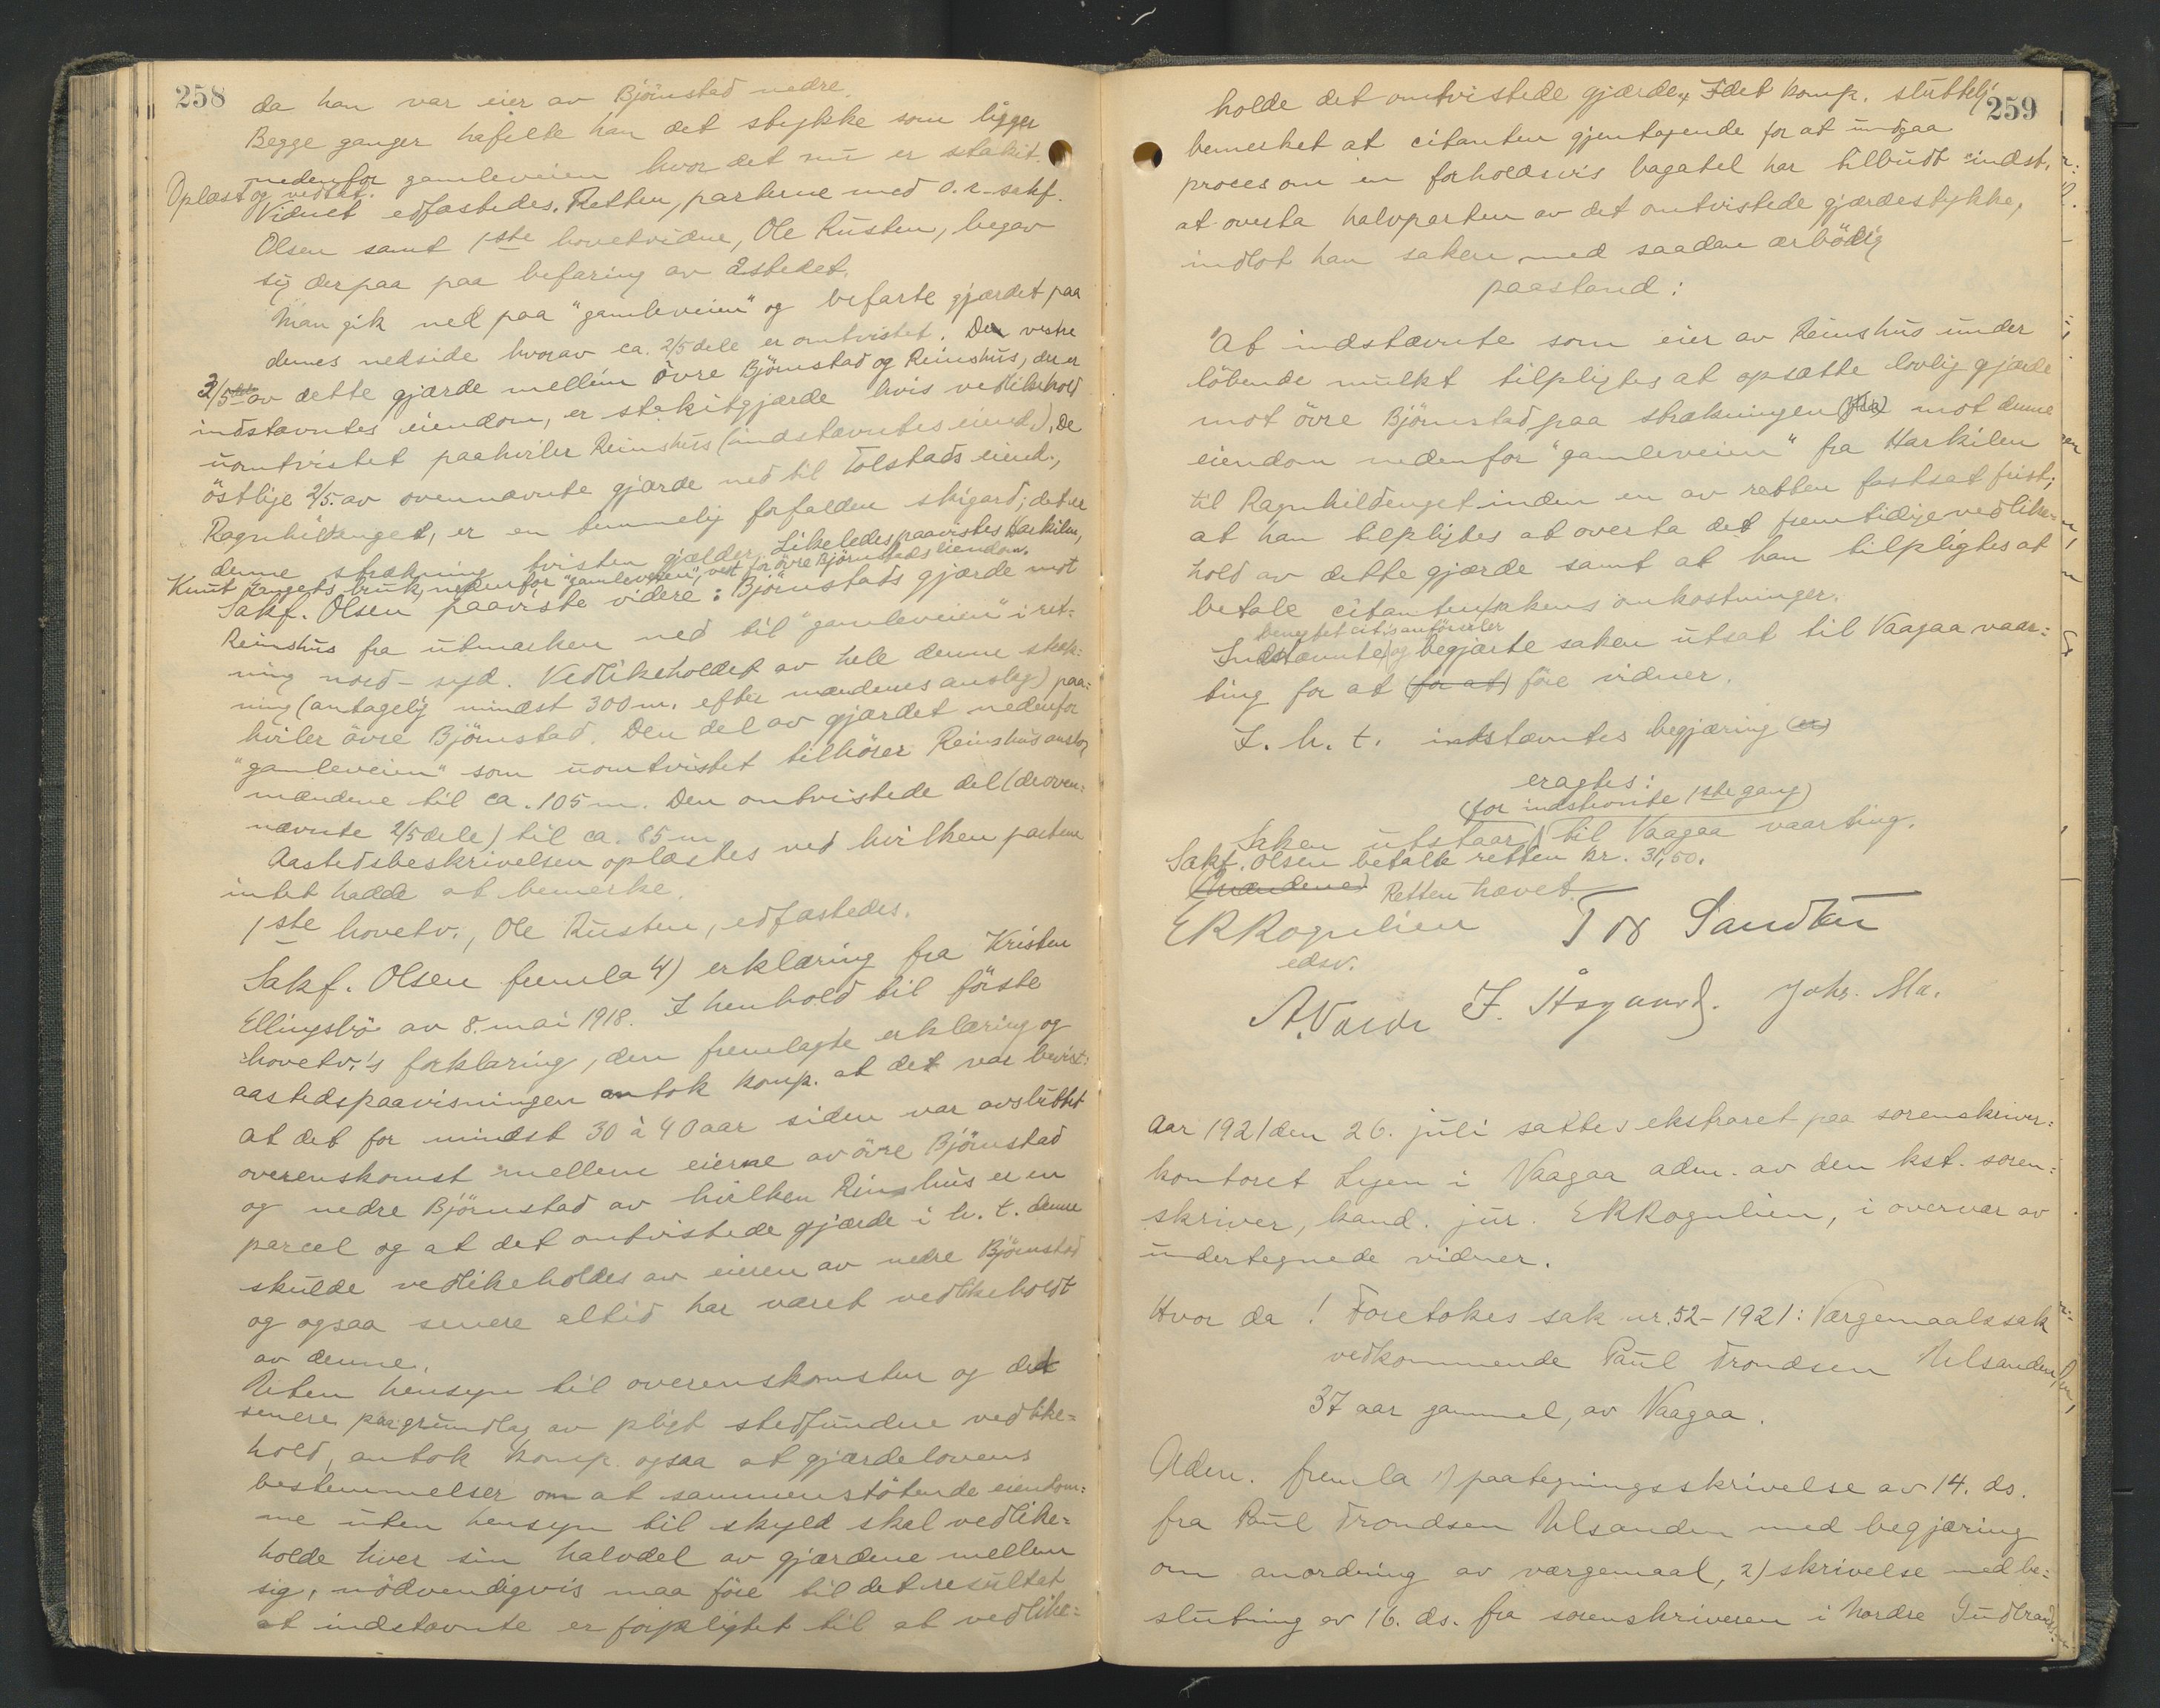 258
da han var eier av Björnstad nedre.
Begge ganger hefilte han det stykke som ligger
nedenfor gamleveien hvor det nu er stakit.
Oplæst og vedtat.
Vidnet edfæstedes. Retten, parterne med o.r.sakf.
Olsen samt 1ste hovetvidne, Ole Rusten, begav
sig derpaa paa befaring av åstedet.
Man gik ned paa "gamleveien" og befarte gjærdet paa
dennes nedside hvorav ca. 2/5 dele er omtvistet. Den vestre
3/5 av dette gjærde mellem övre Björnstad og Reinshus, der er
indstævntes eiendom, er stakitgjærde hvis vedlikehold
uomtvistet paahviler Reinshus (indstævntes eiend.). De
östlige 2/5 av ovennævnte gjærde ned til Tolstads eiend.,
Ragnhildenget, er en temmelig forfalden skigard; det er
denne strækning tvisten gjælder. Likeledes paavistes Harkilen,
Knut Zangets bruk, nedenfor "gamleveien", vest for övre Björnstads eiendom.
Sakf. Olsen paaviste videre: Björnstads gjærde mot
Reinshus fra utmarken ned til "gamleveien" i ret-
ning nord-syd. Vedlikeholdet av hele denne stræk-
ning (antagelig mindst 300 m. efter mændenes anslag) paa-
hviler övre Björnstad. Den del av gjærdet nedenfor
"gamleveien" som uomtvistet tilhörer Reinshus anslog
mændene til ca. 105 m. Den omtvistede del (de oven-
nævnte 2/5 dele) til ca. 85 m.
Aastedsbeskrivelsen oplæstes ved hvilken parterne
intet hadde at bemerke.
1ste hovetv., Ole Rusten, edfæstedes.
Sakf. Olsen fremla 4) erklæring fra Kristen
Ellingsbö av 8. mai 1918. I henhold til förste
hovetv.'s forklaring, den fremlagte erklæring og
aastedspaavisningen antok komp. at det var bevist:
at det for mindst 30 à 40 aar siden var avsluttet
overenskomst mellem eierne av övre Björnstad
og nedre Björnstad av hvilken Reinshus er en
parcel og at det omtvistede gjærde i h. t. denne
skulde vedlikeholdes av eieren av nedre Björnstad
og ogsaa senere altid har været vedlikeholdt
av denne.
Uten hensyn til overenskomsten og det
senere paa grundlag av pligt stedfundne vedlike-
hold, antok komp. ogsaa at gjærdelovens
bestemmelser om at sammenstötende eiendom-
me uten hensyn til skyld skal vedlike-
holde hver sin halvdel av gjærdene mellem
sig, nödvendigvis maa före til det resultat
at indstævnte er forpligtet til at vedlike-
259
holde det omtvistede gjærde. Idet komp. sluttelig
bemerket at citanten gjentagende for at undgaa
proces om en forholdsvis bagatel har tilbudt indst.
at overta halvparten av det omtvistede gjærdestykke,
indlot han saken med saadan ærbödig
paastand:
"At indstævnte som eier av Reinshus under
löbende mulkt tilpligtes at opsætte lovlig gjærde
mot övre Björnstad paa strækningen mot denne
eiendom nedenfor "gamleveien" fra Harkilen
til Ragnhildenget inden en av retten fastsat frist;
at han tilpligtes at overta det fremtidige vedlike-
hold av dette gjærde samt at han tilpligtes at
betale citanten sakens omkostninger.
benegtet cit.'s anförsler
Indstævnte og begjærte saken utsat til Vaagaa vaar-
ting for at (for at) före vidner.
I. h. t. indstævntes begjæring
eragtes:
(for indstævnte 1ste gang)
Saken utstaar til Vaagaa vaarting.
Sakf. Olsen betalte retten kr. 31,50.
(Mændene) Retten hævet.
E R Rognlien Tor Sandbu
edsv.
A. Valde J. Håganes. Johs. Mo.
Aar 1921 den 26. juli sattes ekstraret paa sorenskriver-
kontoret Lyen i Vaagaa adm. av den kst. soren-
skriver, kand. jur. E R Rognlien, i overvær av
undertegnede vidner.
Hvor da! Foretokes sak nr. 52-1921: Værgemaalssak
vedkommende Paul Trondsen Ulsanden,
37 aar gammel, av Vaagaa.
Adm. fremla 1) paategningsskrivelse av 14. ds.
fra Paul Trondsen Ulsanden med begjæring
om anordning av værgemaal, 2) skrivelse med be-
slutning av 16. ds. fra sorenskriveren i Nordre Gudbrands-